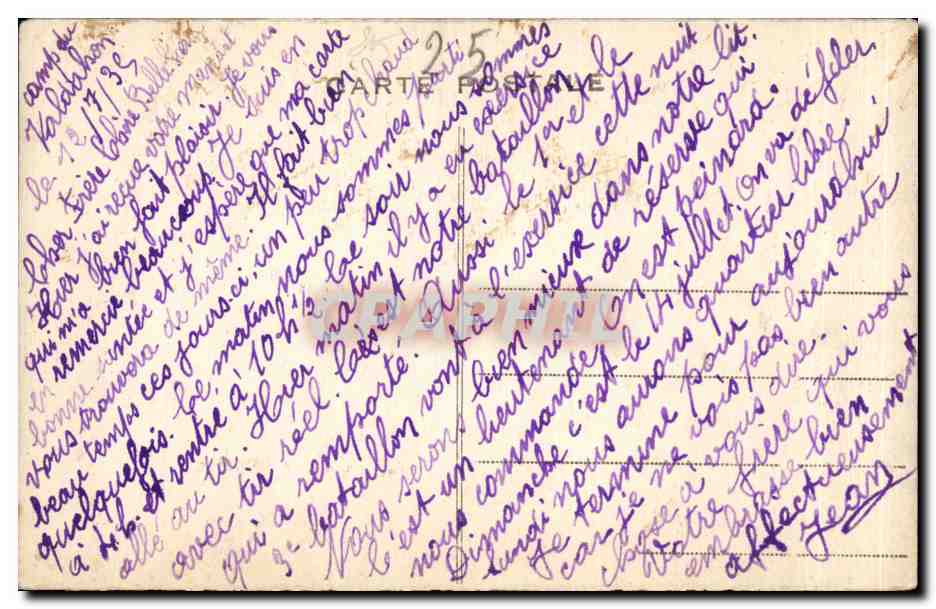 25
CARTE POSTALE
camp du
Valdahon
le 12/7/35
Très Chère Belle Soeur
Hier j'ai reçue votre
qui m'a bien fait plaisir. Je vous
en remercie beaucoup. Je suis en
bonne santée et j'espère que ma carte
vous trouvera de même. Il fait bien
beau temps ces jours-ci, un peu trop chaud
quelquefois. Le matin nous sommes parti
à 4h. et rentré à 10h ½ Le soir nous sommes
allé au tir. Hier matin il y a eu exercice
avec tir réel. C'est notre bataillon
qui a remporté. Aussi le 1er et le
3e bataillon vont à l'exersice cette nuit
Nous serons bien mieux dans notre lit.
C'est un lieutenant de réserve qui
nous commande. On est peinard.
Dimanche c'est le 14 juillet. On va défiler.
Lundi nous aurons quartier libre.
Je termine pour aujourd'hui
car je ne vois pas bien autre
chose à vous dire.
Votre frère qui vous
embrasse bien
affectueusement
Jean
CPAPHIL